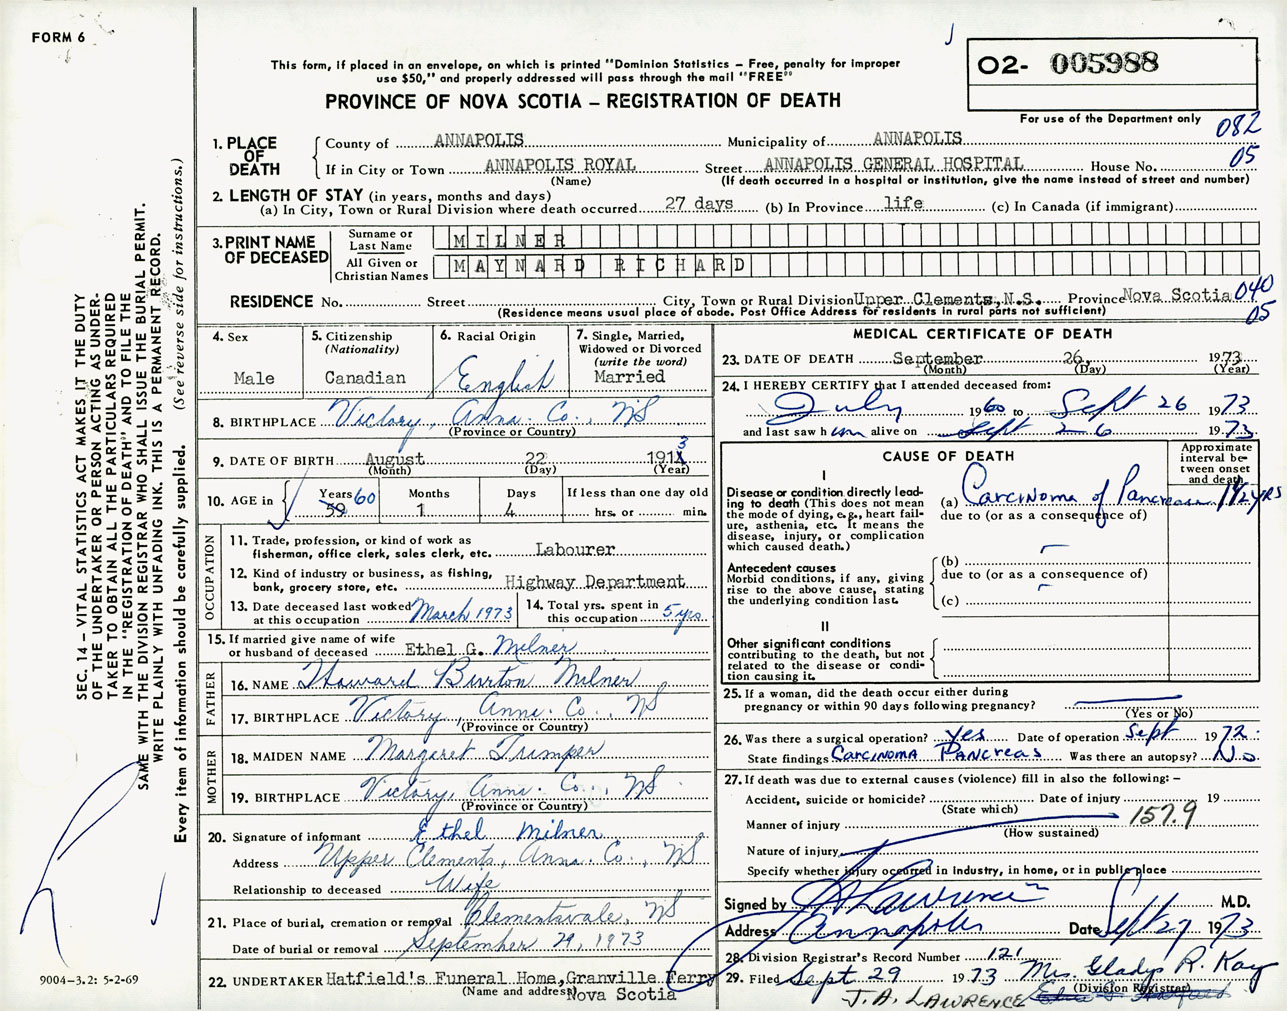 FORM 6
This form, if placed in an envelope, on which is printed "Dominion Statistics – Free, penalty for improper
use $50," and properly addressed will pass through the mail "FREE"
PROVINCE OF NOVA SCOTIA – REGISTRATION OF DEATH
O2- 005988
For use of the Department only
082
05
1. PLACE OF DEATH
County of ANNAPOLIS Municipality of ANNAPOLIS
If in City or Town ANNAPOLIS ROYAL Street ANNAPOLIS GENERAL HOSPITAL House No.
(Name) (If death occurred in a hospital or institution, give the name instead of street and number)
2. LENGTH OF STAY (in years, months and days)
(a) In City, Town or Rural Division where death occurred 27 days (b) In Province life (c) In Canada (if immigrant)
3. PRINT NAME OF DECEASED
Surname or Last Name MILNER
All Given or Christian Names MAYNARD RICHARD
RESIDENCE No. Street City, Town or Rural Division Upper Clements, N.S. Province Nova Scotia 040
(Residence means usual place of abode. Post Office Address for residents in rural parts not sufficient) 05
4. Sex
Male
5. Citizenship
(Nationality)
Canadian
6. Racial Origin
English
7. Single, Married,
Widowed or Divorced
(write the word)
Married
8. BIRTHPLACE Victory, Anna. Co., NS
(Province or Country)
9. DATE OF BIRTH August 22 1913
(Month) (Day) (Year)
10. AGE in Years 59 60 Months 1 Days 4 If less than one day old
hrs. or min.
OCCUPATION
11. Trade, profession, or kind of work as
fisherman, office clerk, sales clerk, etc. Labourer
12. Kind of industry or business, as fishing,
bank, grocery store, etc. Highway Department
13. Date deceased last worked
at this occupation March 1973
14. Total yrs. spent in
this occupation 5 yrs
15. If married give name of wife
or husband of deceased Ethel G. Milner
FATHER
16. NAME Howard Burton Milner
17. BIRTHPLACE Victory, Anna. Co., NS
(Province or Country)
MOTHER
18. MAIDEN NAME Margaret Trimper
19. BIRTHPLACE Victory, Anna. Co., NS
(Province or Country)
20. Signature of informant Ethel Milner
Address Upper Clements, Anna. Co., NS
Relationship to deceased Wife
21. Place of burial, cremation or removal Clementsvale, NS
Date of burial or removal September 29, 1973
22. UNDERTAKER Hatfield's Funeral Home, Granville Ferry
(Name and address) Nova Scotia
MEDICAL CERTIFICATE OF DEATH
23. DATE OF DEATH September 26, 1973
(Month) (Day) (Year)
24. I HEREBY CERTIFY that I attended deceased from:
July 1960 to Sept 26 1973
and last saw him alive on Sept 26 1973
CAUSE OF DEATH
Approximate
interval be-
tween onset
and death
I
Disease or condition directly lead-
ing to death (This does not mean
the mode of dying, e.g., heart fail-
ure, asthenia, etc. It means the
disease, injury, or complication
which caused death.)
(a) Carcinoma of Pancreas 1½ YRS
due to (or as a consequence of)
Antecedent causes
Morbid conditions, if any, giving
rise to the above cause, stating
the underlying condition last.
(b)
due to (or as a consequence of)
(c)
II
Other significant conditions
contributing to the death, but not
related to the disease or condi-
tion causing it.
25. If a woman, did the death occur either during
pregnancy or within 90 days following pregnancy?
(Yes or No)
26. Was there a surgical operation? Yes Date of operation Sept 1972
State findings Carcinoma Pancreas Was there an autopsy? No
27. If death was due to external causes (violence) fill in also the following: –
Accident, suicide or homicide? Date of injury 19
(State which)
Manner of injury 157.9
(How sustained)
Nature of injury
Specify whether injury occurred in industry, in home, or in public place
Signed by Lawrence M.D.
Address Annapolis Date Sept 27 1973
28. Division Registrar's Record Number 121
29. Filed Sept 29 1973 Mrs. Gladys R. Kay
(Division Registrar)
J. A. LAWRENCE
SEC. 14 – VITAL STATISTICS ACT MAKES IT THE DUTY
OF THE UNDERTAKER OR PERSON ACTING AS UNDER-
TAKER TO OBTAIN ALL THE PARTICULARS REQUIRED
IN THE "REGISTRATION OF DEATH" AND TO FILE THE
SAME WITH THE DIVISION REGISTRAR WHO SHALL ISSUE THE BURIAL PERMIT.
WRITE PLAINLY WITH UNFADING INK. THIS IS A PERMANENT RECORD.
Every item of information should be carefully supplied. (See reverse side for instructions.)
9004-3.2: 5-2-69